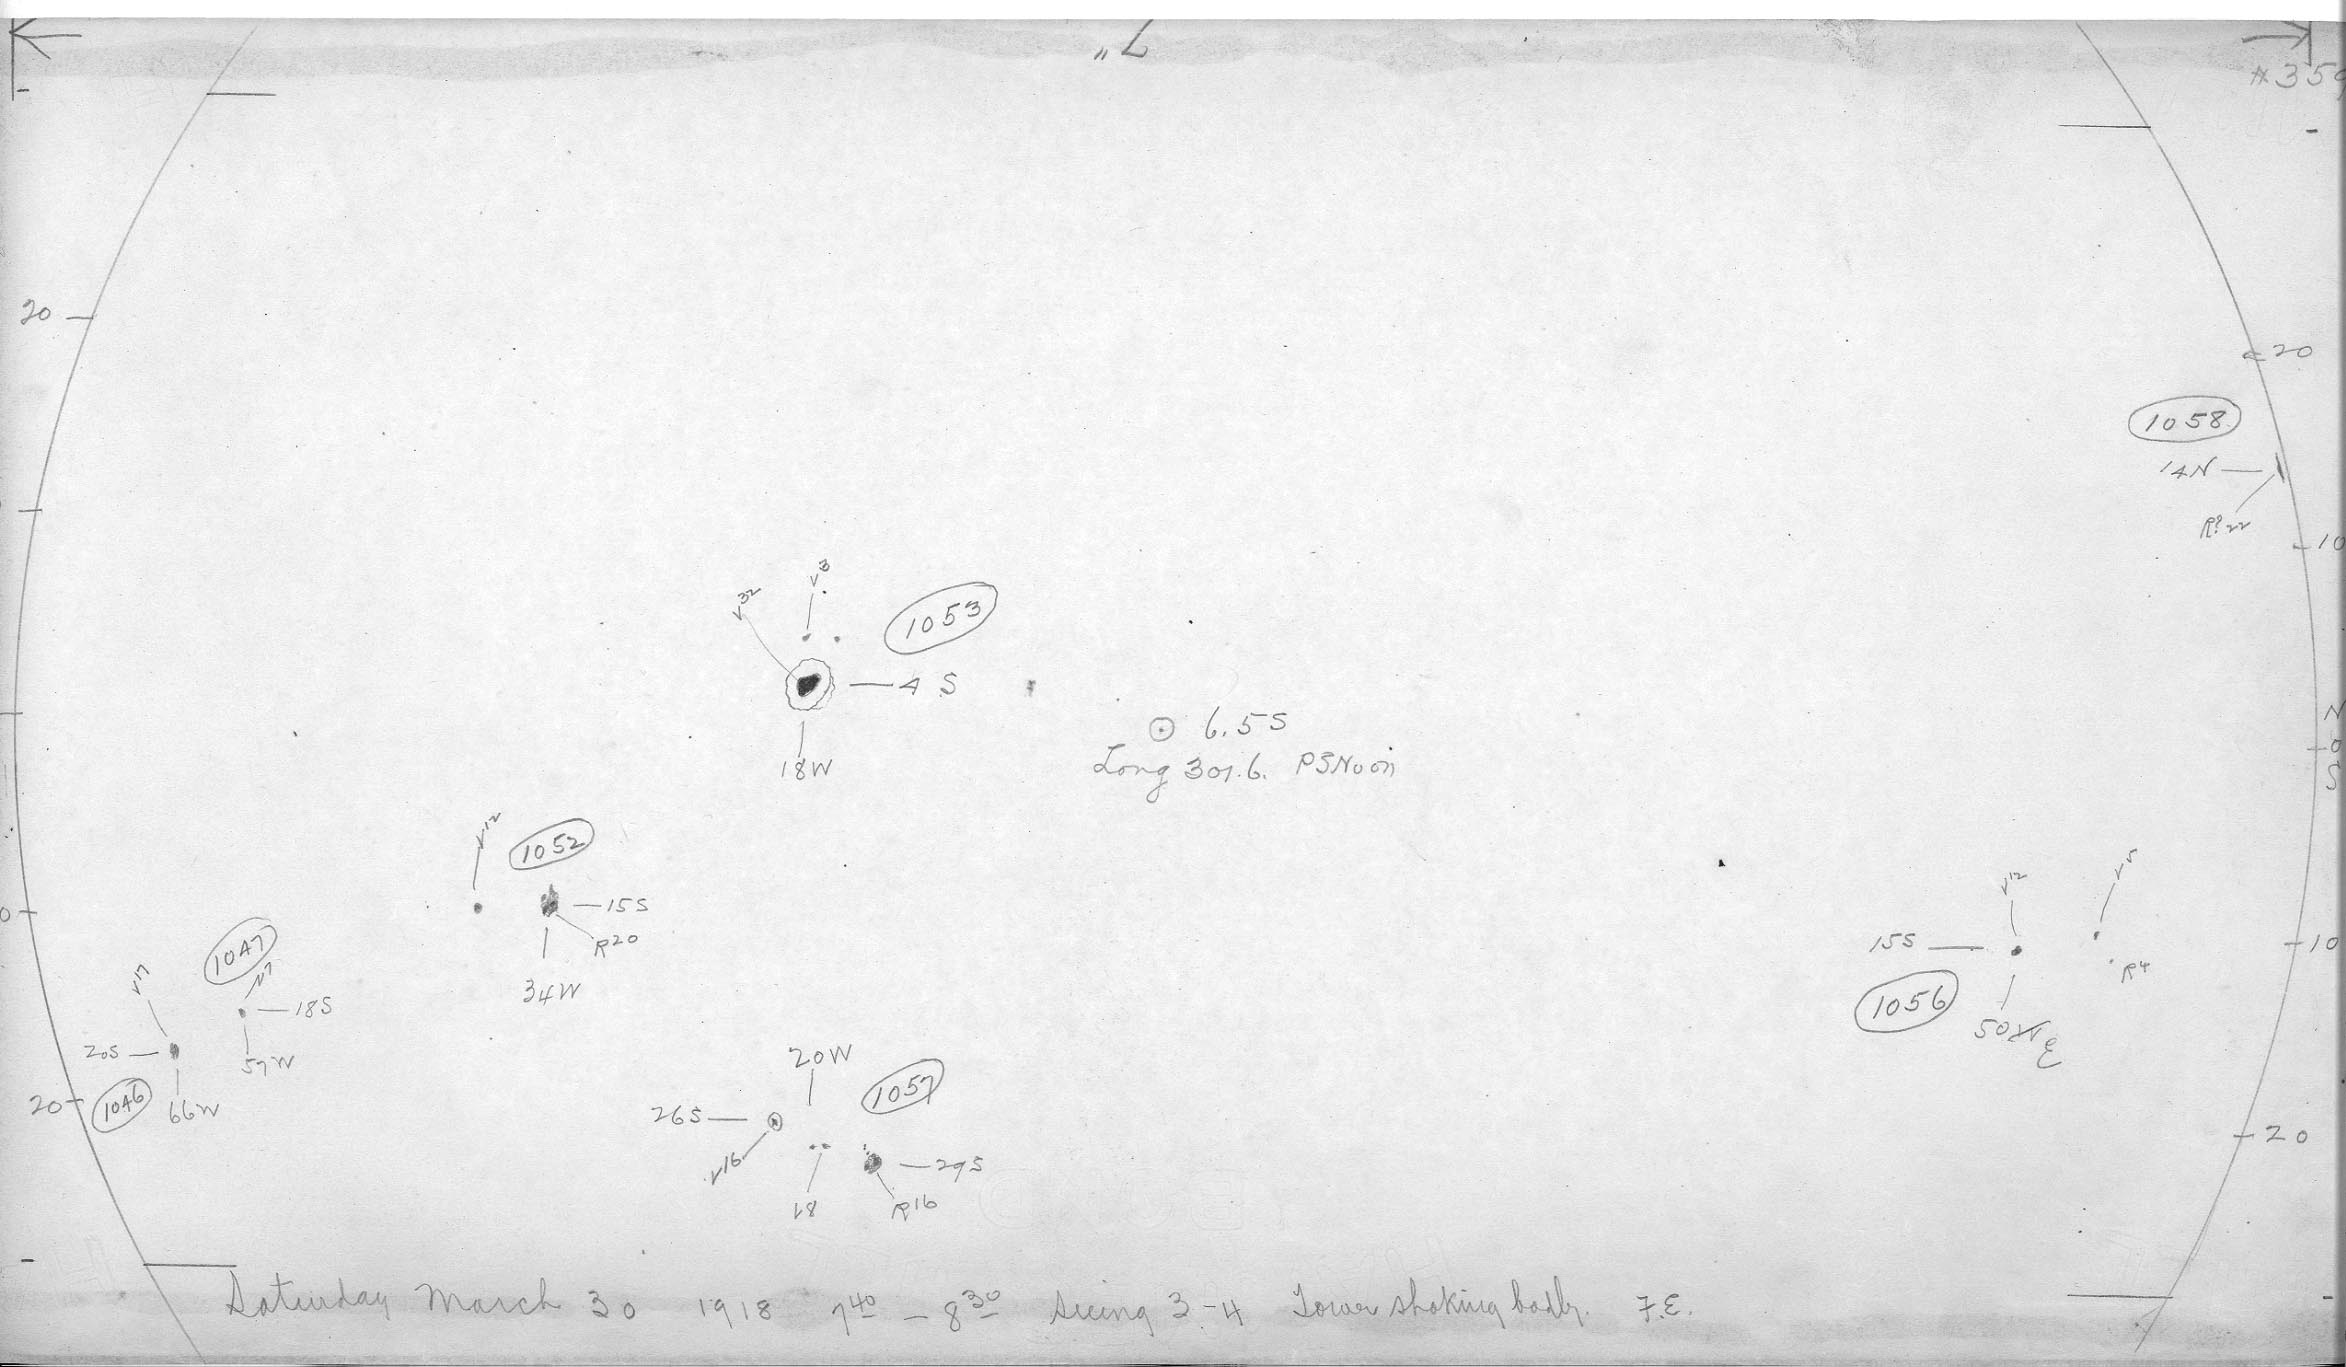 "7
#359
20
20
1058
14N
R?22
10
V3
V32
1053
4 S
N
0
S
6.5S
Long 301.6. PSNoon
18W
V12
1052
0
15S
R20
34W
V12
V5
15S
10
R4
1056
50W E
1047
V7
V17
18S
20S
57W
20
1046
66W
20W
1057
26S
V16
20
29S
V8
R16
Saturday March 30 1918 7 40 – 8 30 Seeing 3-4 Tower shaking badly. F.E.